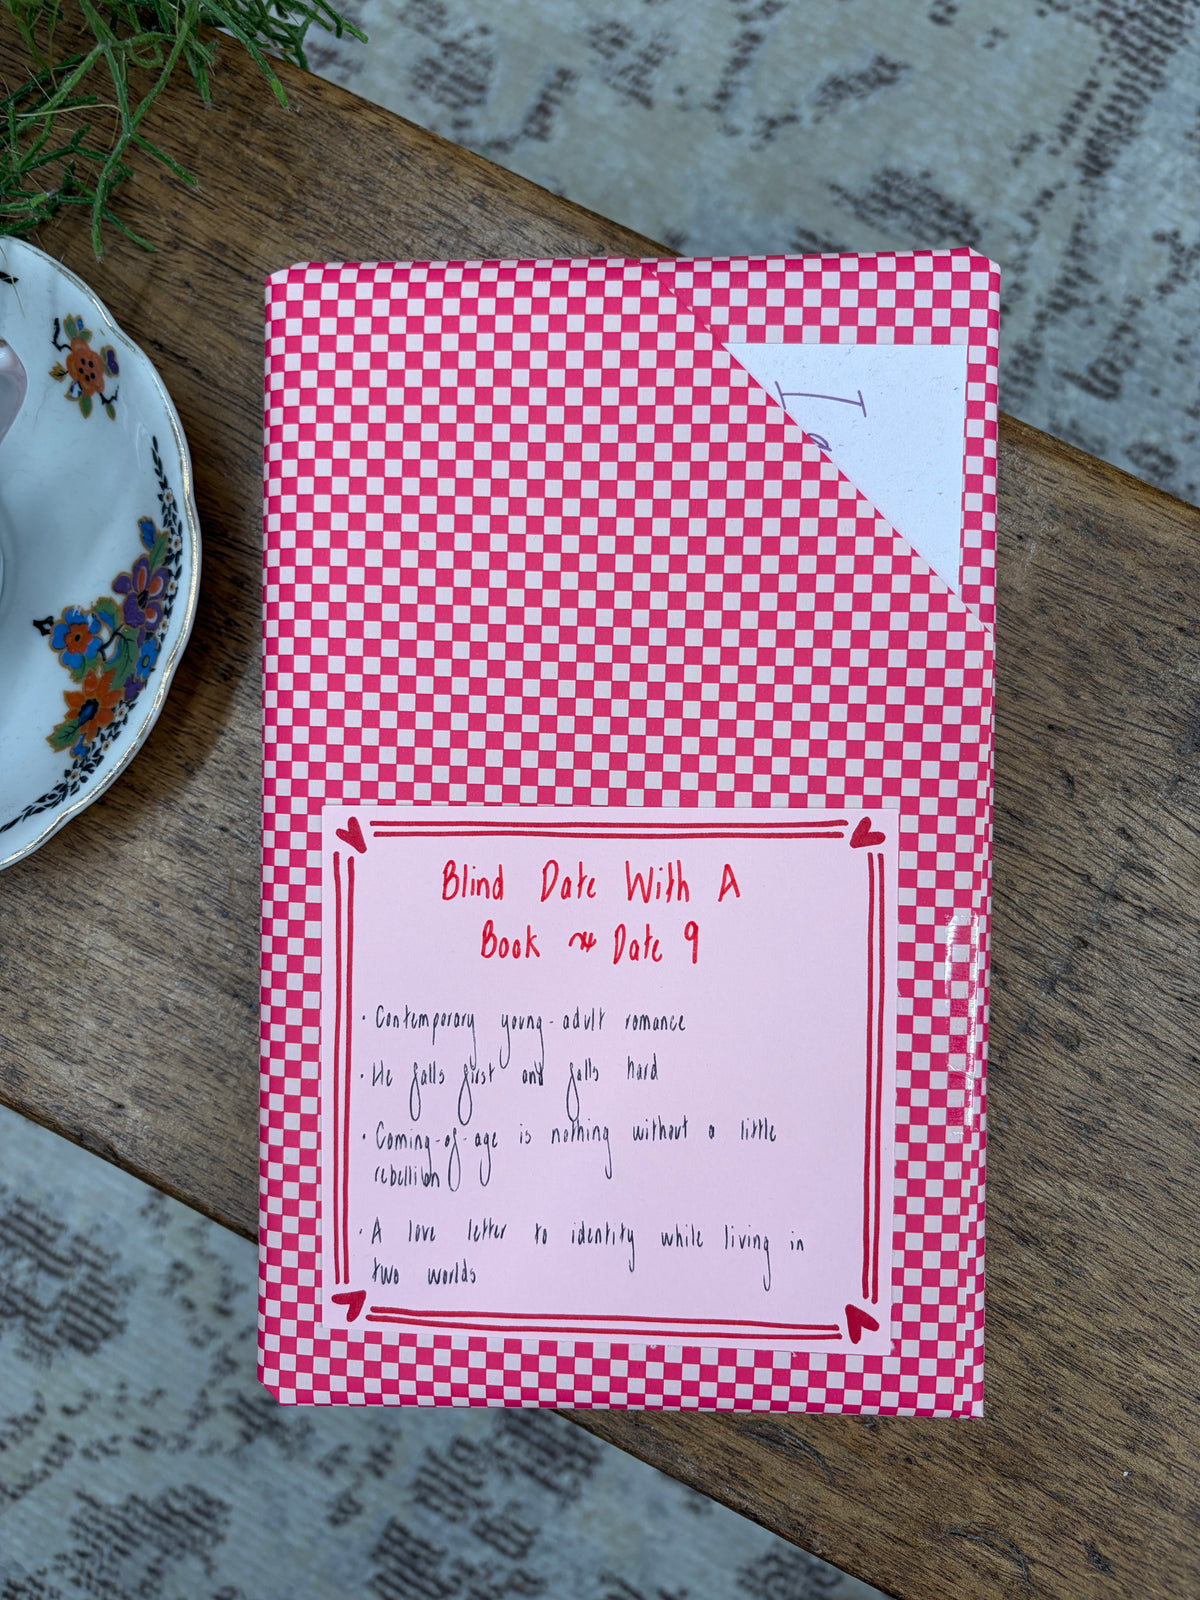 Blind Date With A
Book ~ Date 9
· Contemporary young-adult romance
· He falls first and falls hard
· Coming-of-age is nothing without a little
rebellion
· A love letter to identity while living in
two worlds